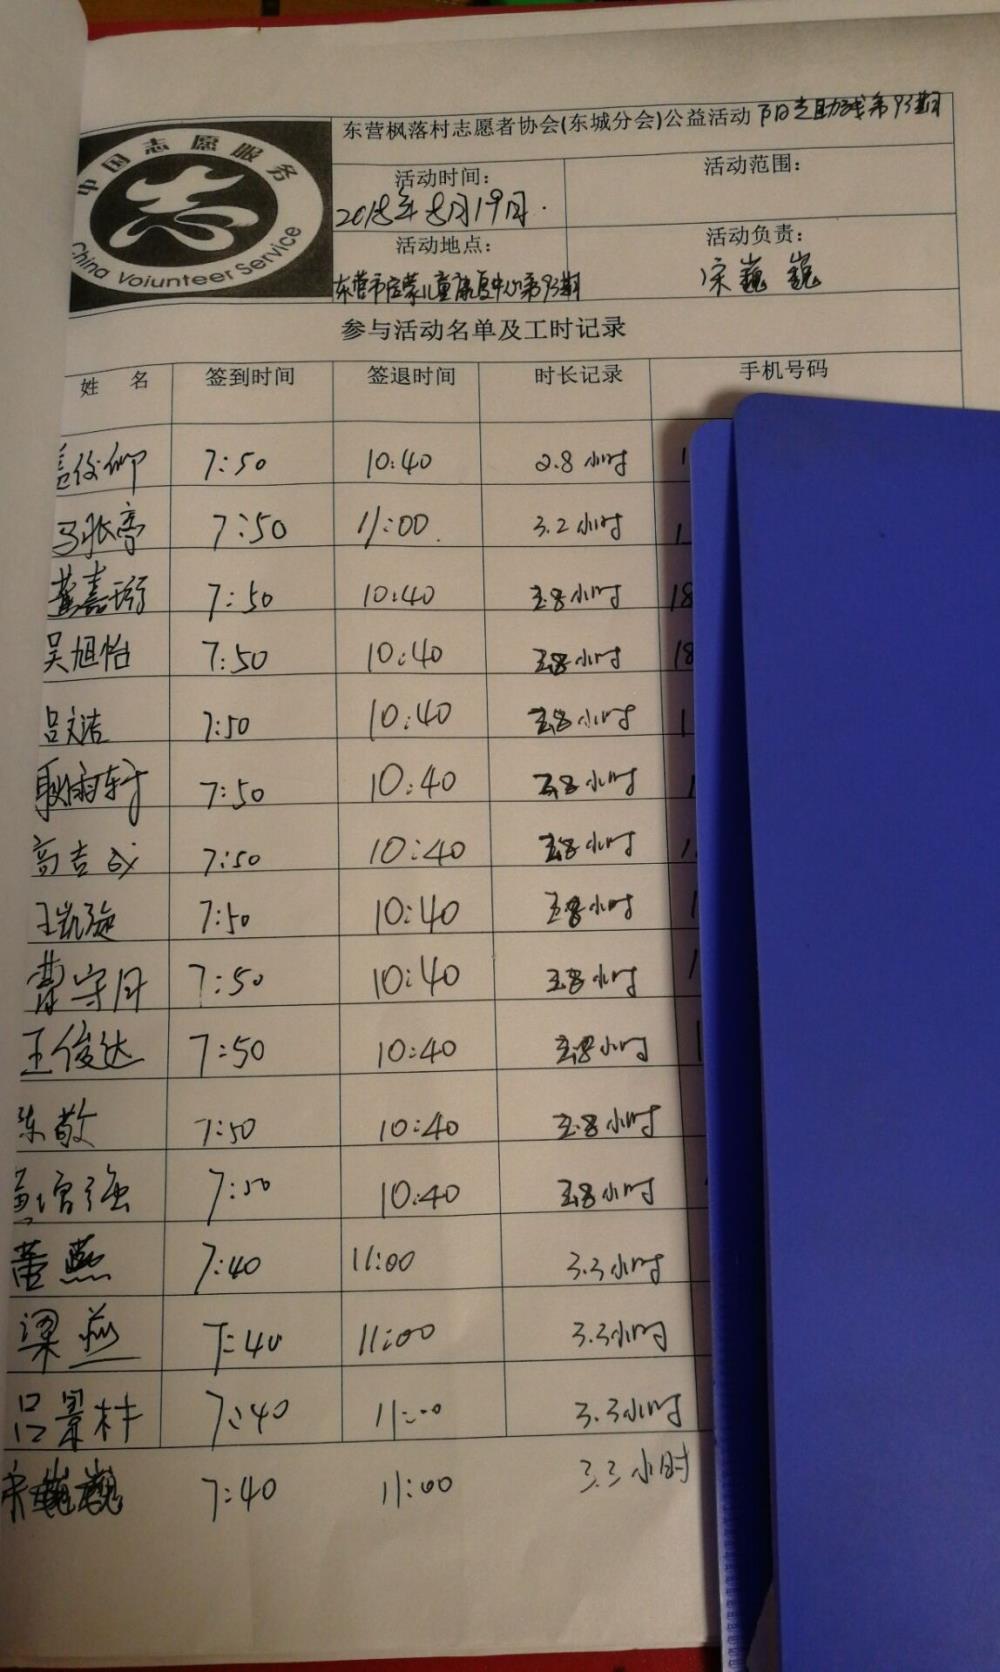 东营枫落村志愿者协会(东城分会)公益活动 阳光助残第93期
中国志愿服务
China Voiunteer Service
活动时间: 活动范围:
2018年8月19日.
活动地点: 活动负责:
东营市启蒙儿童康复中心第93期 宋巍巍
参与活动名单及工时记录
姓 名 签到时间 签退时间 时长记录 手机号码
7:50 10:40 2.8小时 1
马张亭 7:50 11:00. 3.2小时 1
7:50 10:40 2.8小时 18
吴旭怡 7:50 10:40 2.8小时 18
吕文洁 7:50 10:40 2.8小时 1
耿雨轩 7:50 10:40 2.8小时 1
高吉成 7:50 10:40 2.8小时 1
王凯旋 7:50 10:40 2.8小时 1
曹守月 7:50 10:40 2.8小时 1
王俊达 7:50 10:40 2.8小时 1
陈敬 7:50 10:40 2.8小时
7:50 10:40 2.8小时
董燕 7:40 11:00 3.3小时
梁燕 7:40 11:00 3.3小时
吕景林 7:40 11:00 3.3小时
宋巍巍 7:40 11:00 3.3小时